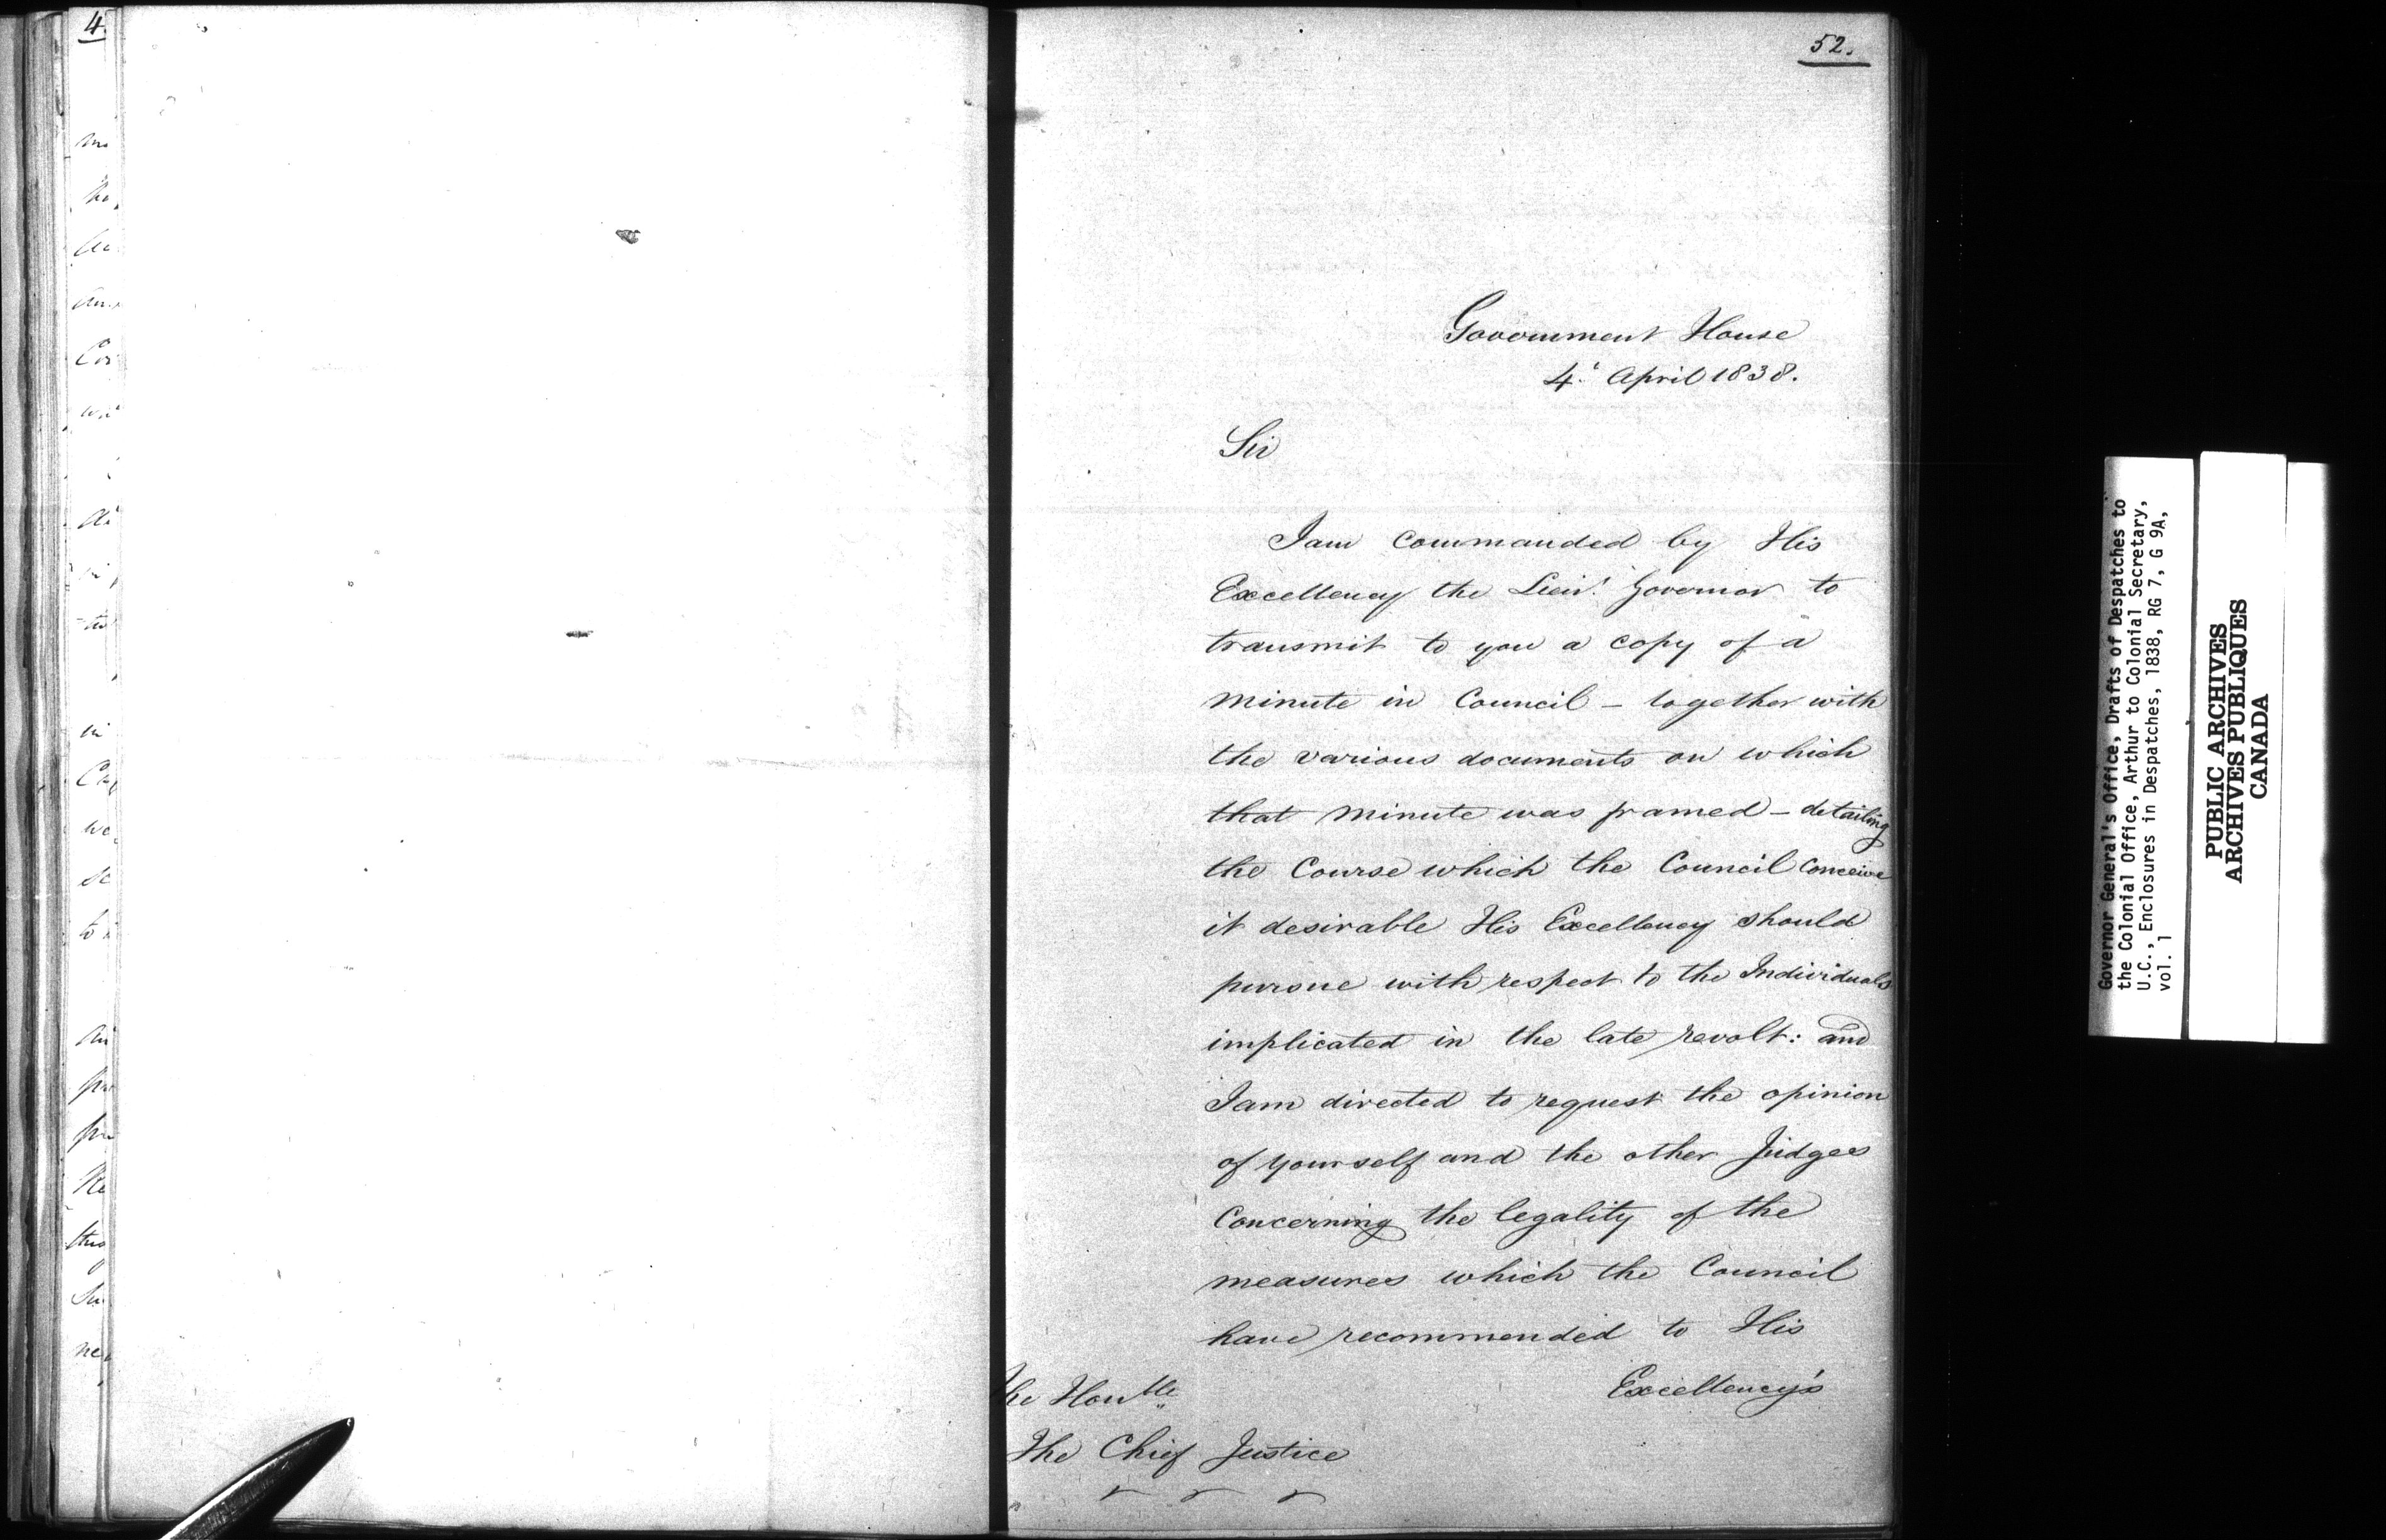 4
52.
Government House
4. April 1838.
Sir
I am Commanded by His
Excellency the Lieut. Governor to
transmit to you a copy of a
minute in Council – together with
the various documents on which
that minute was framed – detailing
the Course which the Council Conceive
it desirable His Excellency should
pursue with respect to the Individuals
implicated in the late revolt: and
I am directed to request the opinion
of yourself and the other Judges
Concerning the legality of the
measures which the Council
have recommended to His
Excellency's
The Honble
The Chief Justice
Governor General's Office, Drafts of Despatches to
the Colonial Office, Arthur to Colonial Secretary,
U.C., Enclosures in Despatches, 1838, RG 7, G 9A,
vol. 1
PUBLIC ARCHIVES
ARCHIVES PUBLIQUES
CANADA